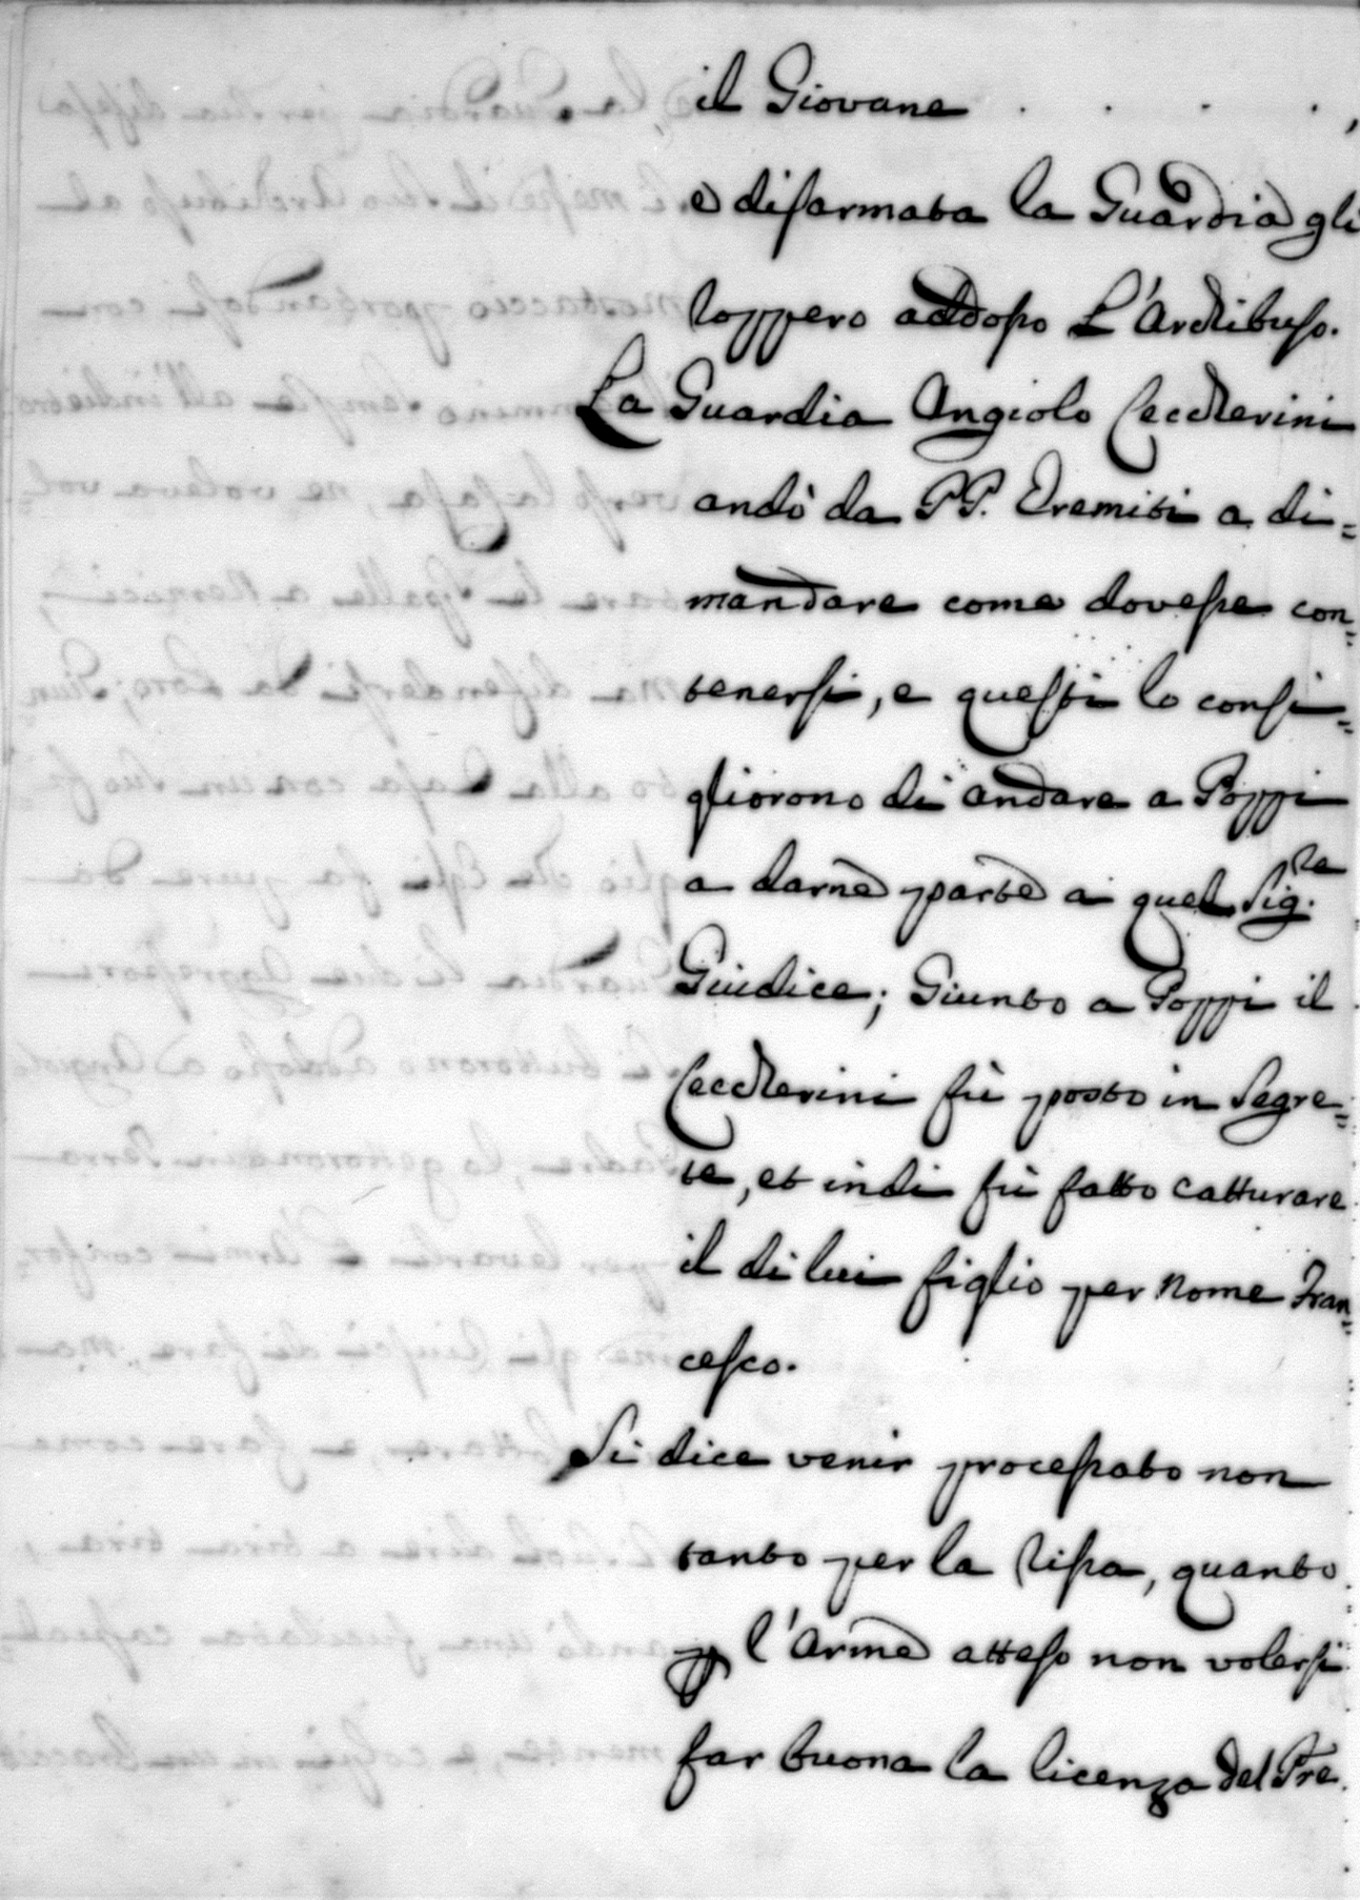 il Giovane . . . . ,
e disarmata la Guardia gli
roppero addosso L'Archibuso.
La Guardia Angiolo Ceccherini
andò da PP. Eremiti a di=
mandare come dovesse con=
tenersi, e questi lo consi=
gliorono di andare a Poppi
a darne parte a quel Sig.re
Giudice; Giunto a Poppi il
Ceccherini fù posto in Segre=
te, et indi fù fatto catturare
il di lui figlio per nome Fran=
cesco.
Si dice venir processato non
tanto per la rissa, quanto
p l'Arme atteso non volersi
far buona la licenza del Pre.